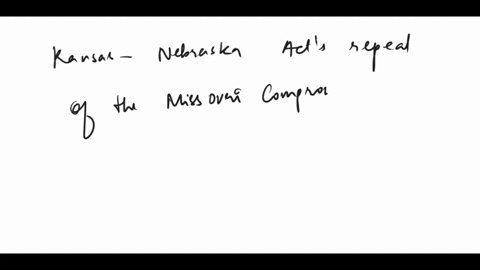 Kansas - Nebraska Act's repeal
of the Missouri Compro